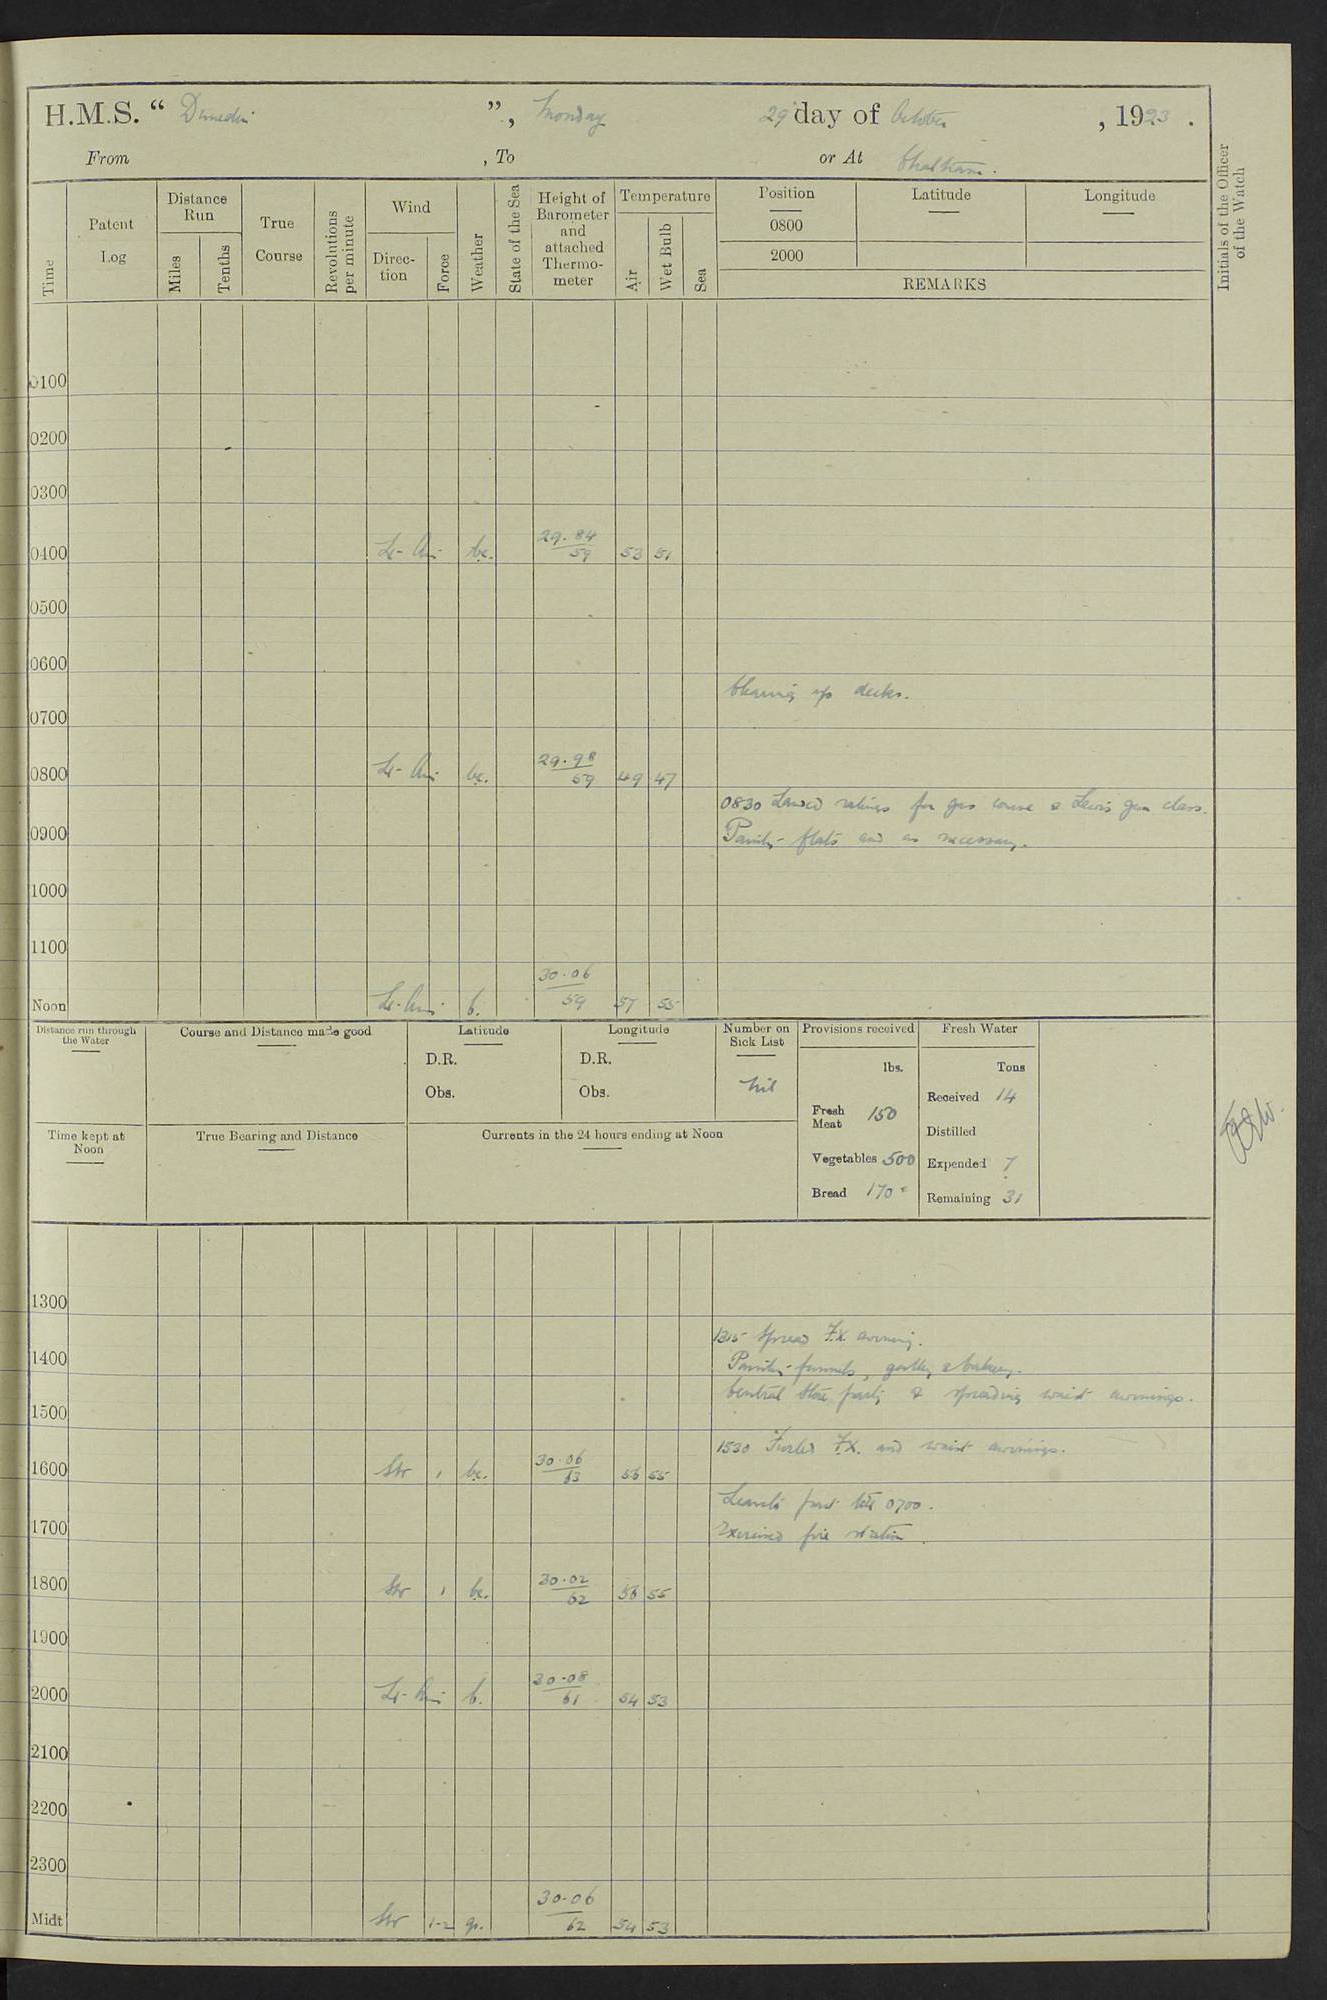 H.M.S. “ Dunedin ”, Monday 29 day of October, 1923.
From , To or At Chatham.
Time
Patent Log
Distance Run
Miles
Tenths
True Course
Revolutions per minute
Wind
Direction
Force
Weather
State of the Sea
Height of Barometer and attached Thermometer
Temperature
Air
Wet Bulb
Sea
Position
Latitude
Longitude
0800
2000
REMARKS
Initials of the Officer of the Watch
0100
0200
0300
0400 Lt- Airs bc. 29.84 59 53 51
0500
0600
Cleaning up decks.
0700
0800 Lt- Airs bc. 29.98 59 49 47
0830 Landed ratings for gas course & Lewis gun class.
0900 Painting flats and as necessary.
1000
1100
Noon Lt- Airs b. 30.06 59 57 55
Distance run through the Water
Course and Distance made good
Latitude
D.R.
Obs.
Longitude
D.R.
Obs.
Number on Sick List
Nil
Provisions received
lbs.
Fresh Meat 150
Vegetables 500
Bread 170
Fresh Water
Tons
Received 14
Distilled
Expended 7
Remaining 31
Time kept at Noon
True Bearing and Distance
Currents in the 24 hours ending at Noon
1300
1315 Spread F.X. awning.
1400 Painting funnels, galley & bakery.
Central Store party & spreading waist awnings.
1500
1530 Furled F.X. and waist awnings.
1600 Str 1 bc. 30.06 63 56 55
Leave to port till 0700.
1700 Exercised fire station.
1800 Str 1 bc. 30.02 62 56 55
1900
2000 Lt- Airs b. 30.08 61 54 53
2100
2200
2300
Midt Str 1-2 30.06 62 54 53